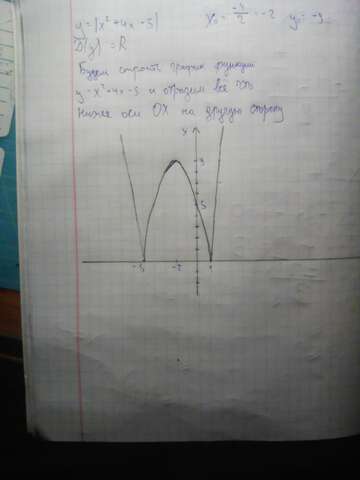 y = |x² + 4x - 5|    x₀ = -4/2 = -2    y₀ = -9
D(y) = R
Будем строить график функции
y = x² + 4x - 5 и отразим все что
ниже оси OX на другую сторону
9
5
-5 -2 1